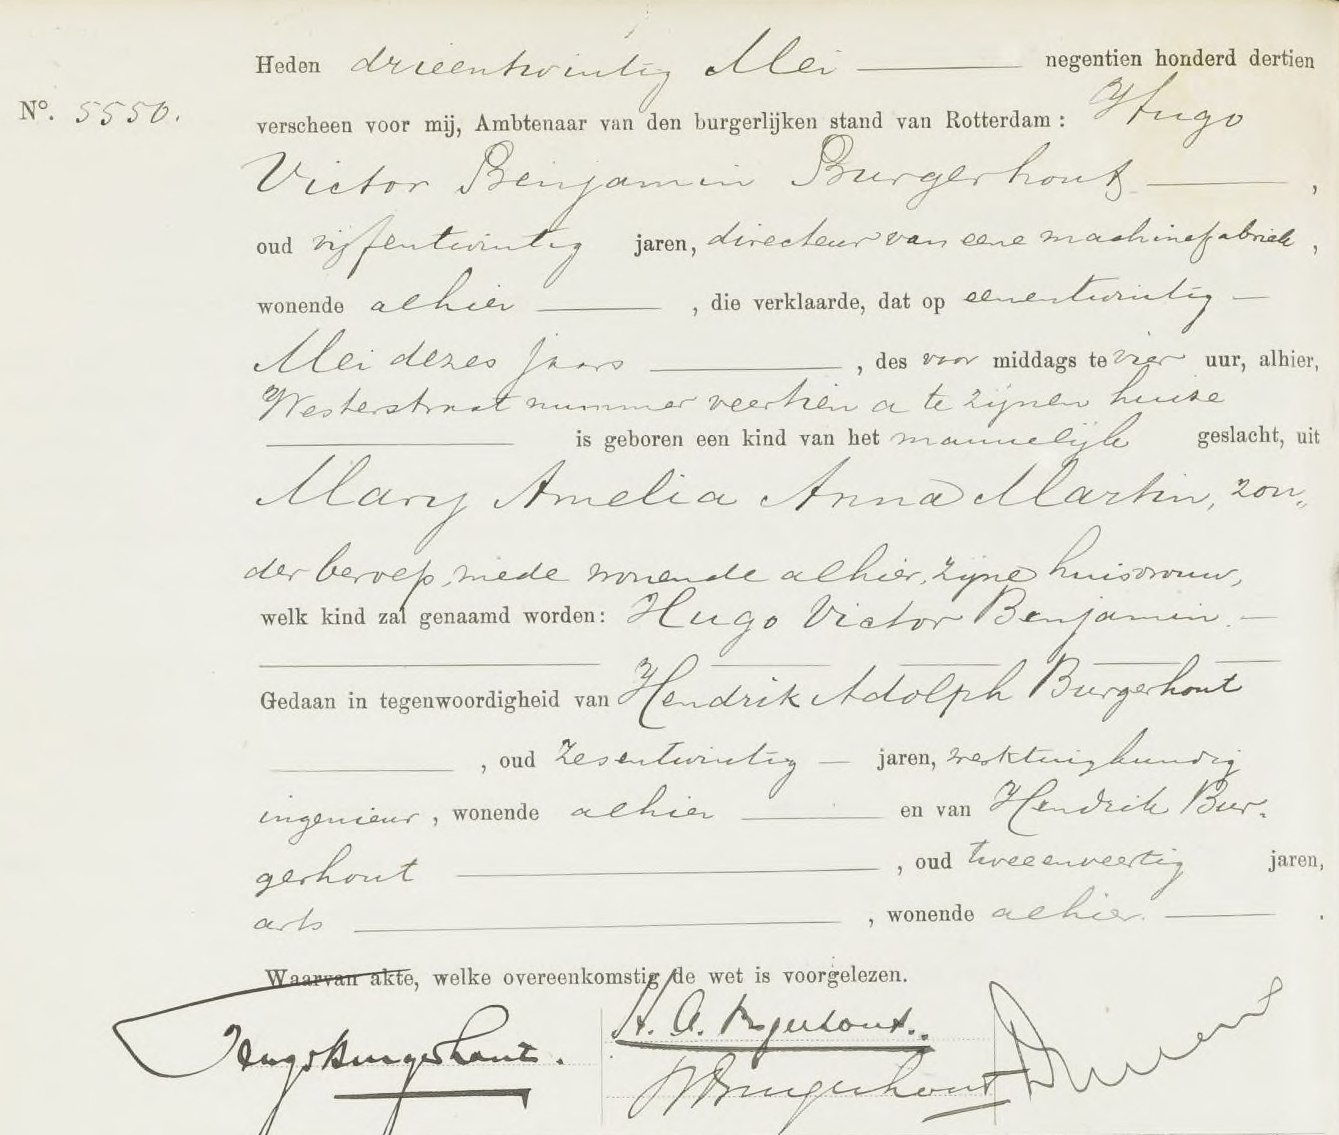 Heden drieentwintig Mei negentien honderd dertien
No. 5550.
verscheen voor mij, Ambtenaar van den burgerlijken stand van Rotterdam: Hugo
Victor Benjamin Burgerhout,
oud vijfentwintig jaren, directeur van eene machinefabriek,
wonende alhier, die verklaarde, dat op eenentwintig
Mei dezes jaars, des voor middags te vier uur, alhier,
Westerstraat nummer veertien a te zijnen huize
is geboren een kind van het mannelijk geslacht, uit
Mary Amelia Anna Martin, zon„
der beroep, mede wonende alhier, zijne huisvrouw,
welk kind zal genaamd worden: Hugo Victor Benjamin.
Gedaan in tegenwoordigheid van Hendrik Adolph Burgerhout
, oud zesentwintig jaren, werktuigkundig
ingenieur, wonende alhier en van Hendrik Bur-
gerhout, oud tweeenveertig jaren,
arts, wonende alhier.
Waarvan akte, welke overeenkomstig de wet is voorgelezen.
Hugo Burgerhout.
H. A. Burgerhout.
HBurgerhout